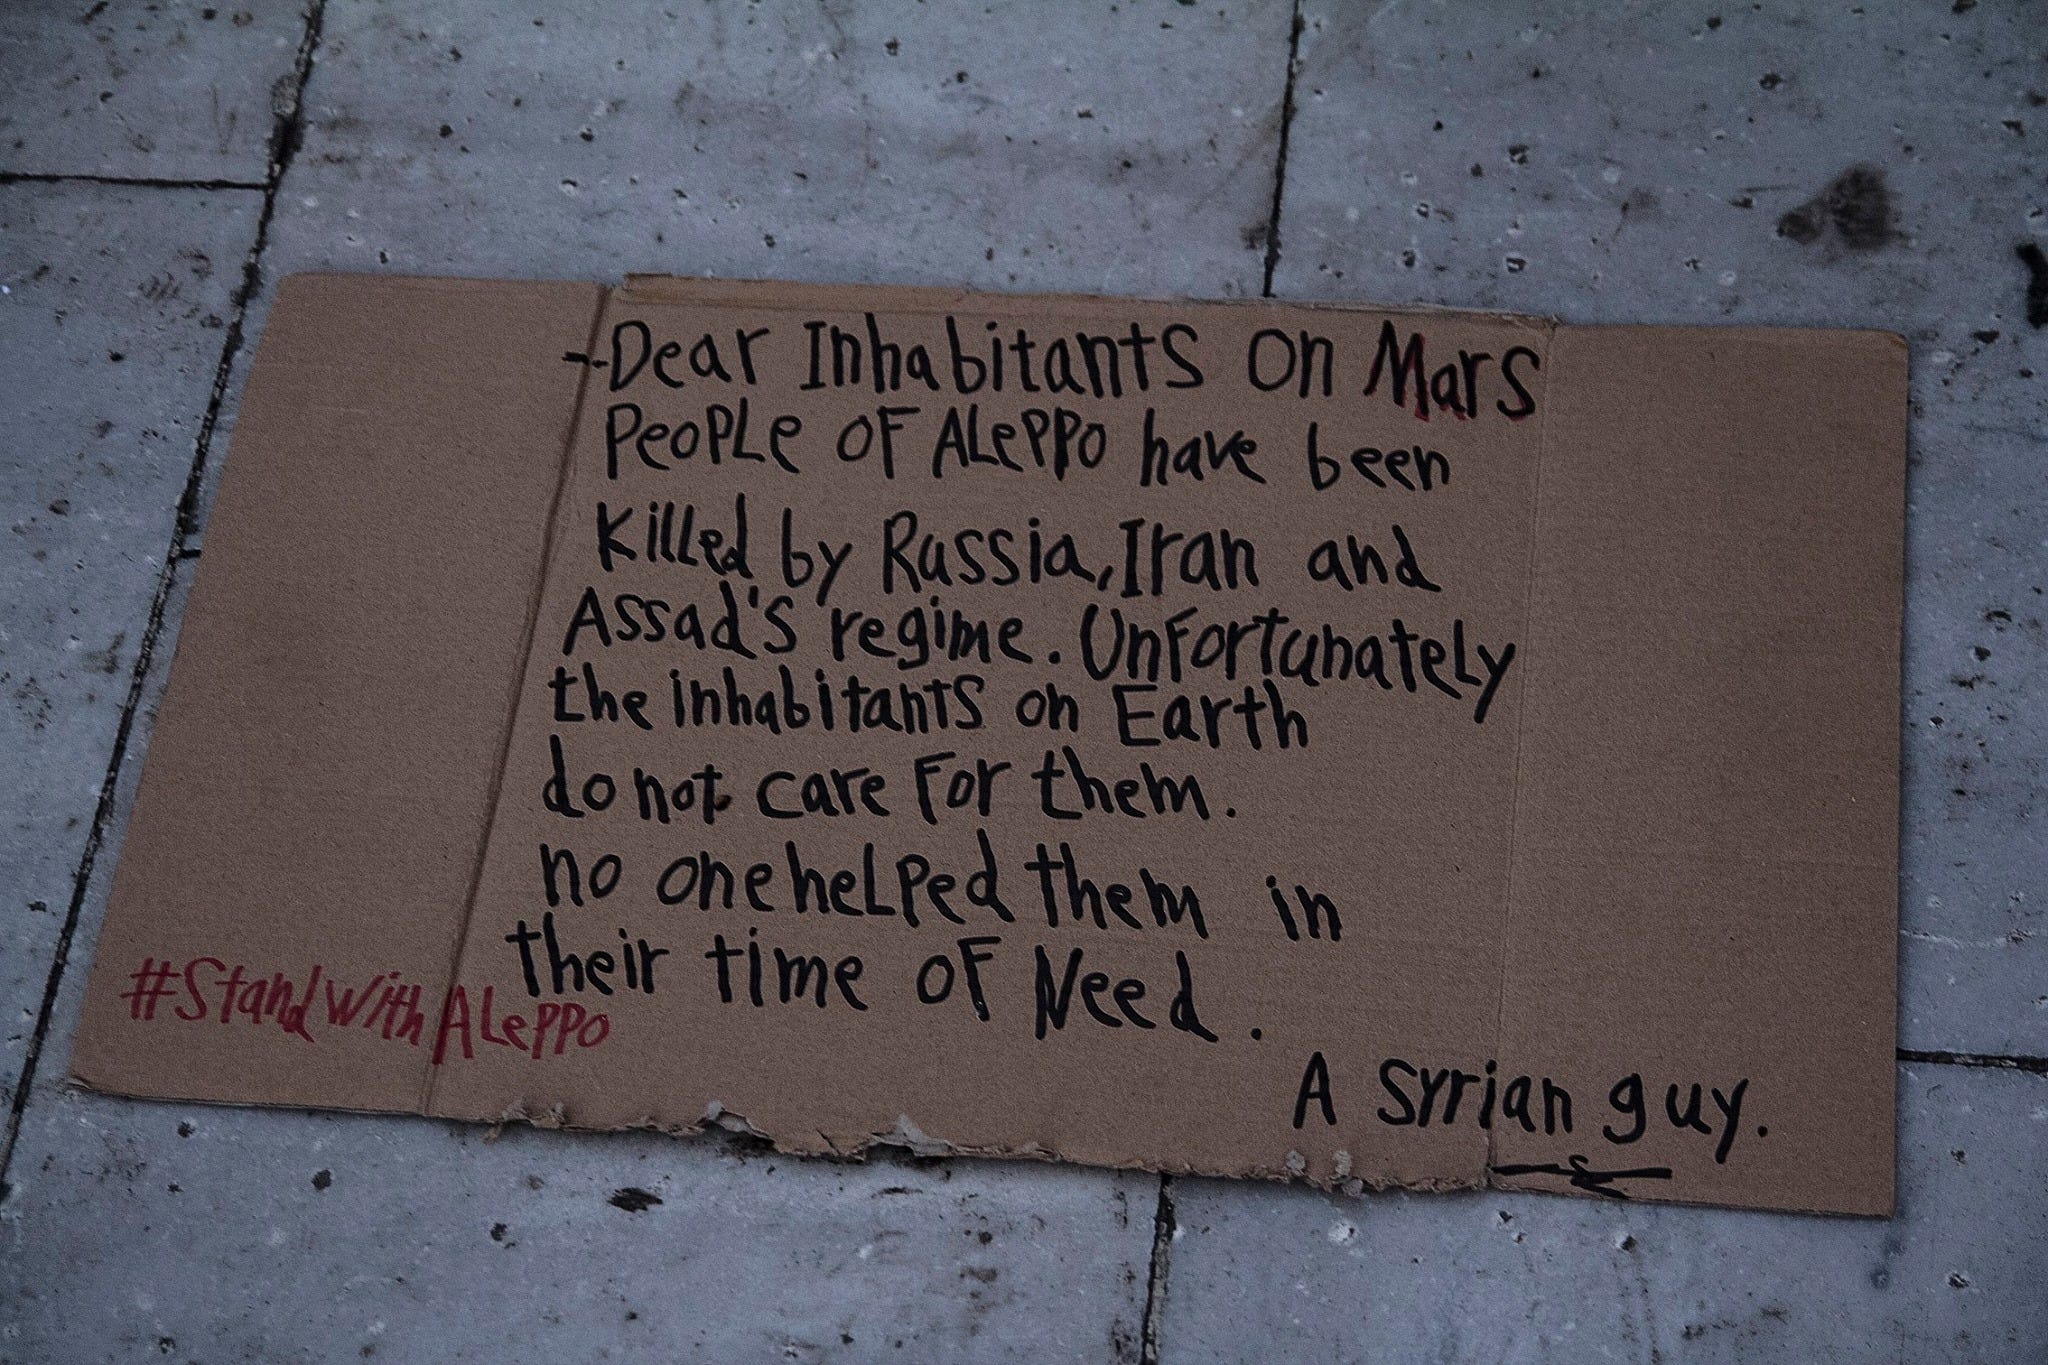 -Dear Inhabitants on Mars
People of Aleppo have been
killed by Russia, Iran and
Assad's regime. Unfortunately
the inhabitants on Earth
do not care for them.
no one helped them in
their time of Need.
#StandWithAleppo
A Syrian guy.